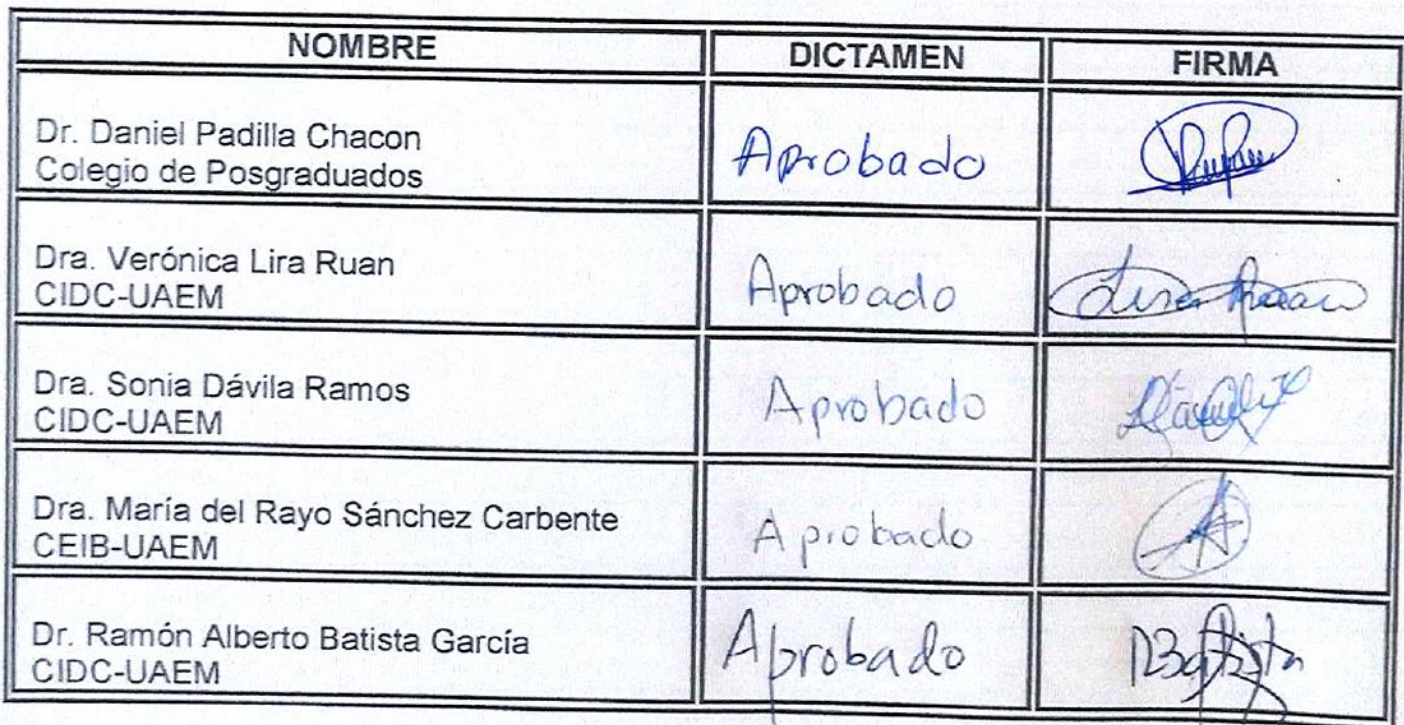 NOMBRE DICTAMEN FIRMA
Dr. Daniel Padilla Chacon
Colegio de Posgraduados
Aprobado
Dra. Verónica Lira Ruan
CIDC-UAEM
Aprobado
Dra. Sonia Dávila Ramos
CIDC-UAEM
Aprobado
Dra. María del Rayo Sánchez Carbente
CEIB-UAEM
Aprobado
Dr. Ramón Alberto Batista García
CIDC-UAEM
Aprobado